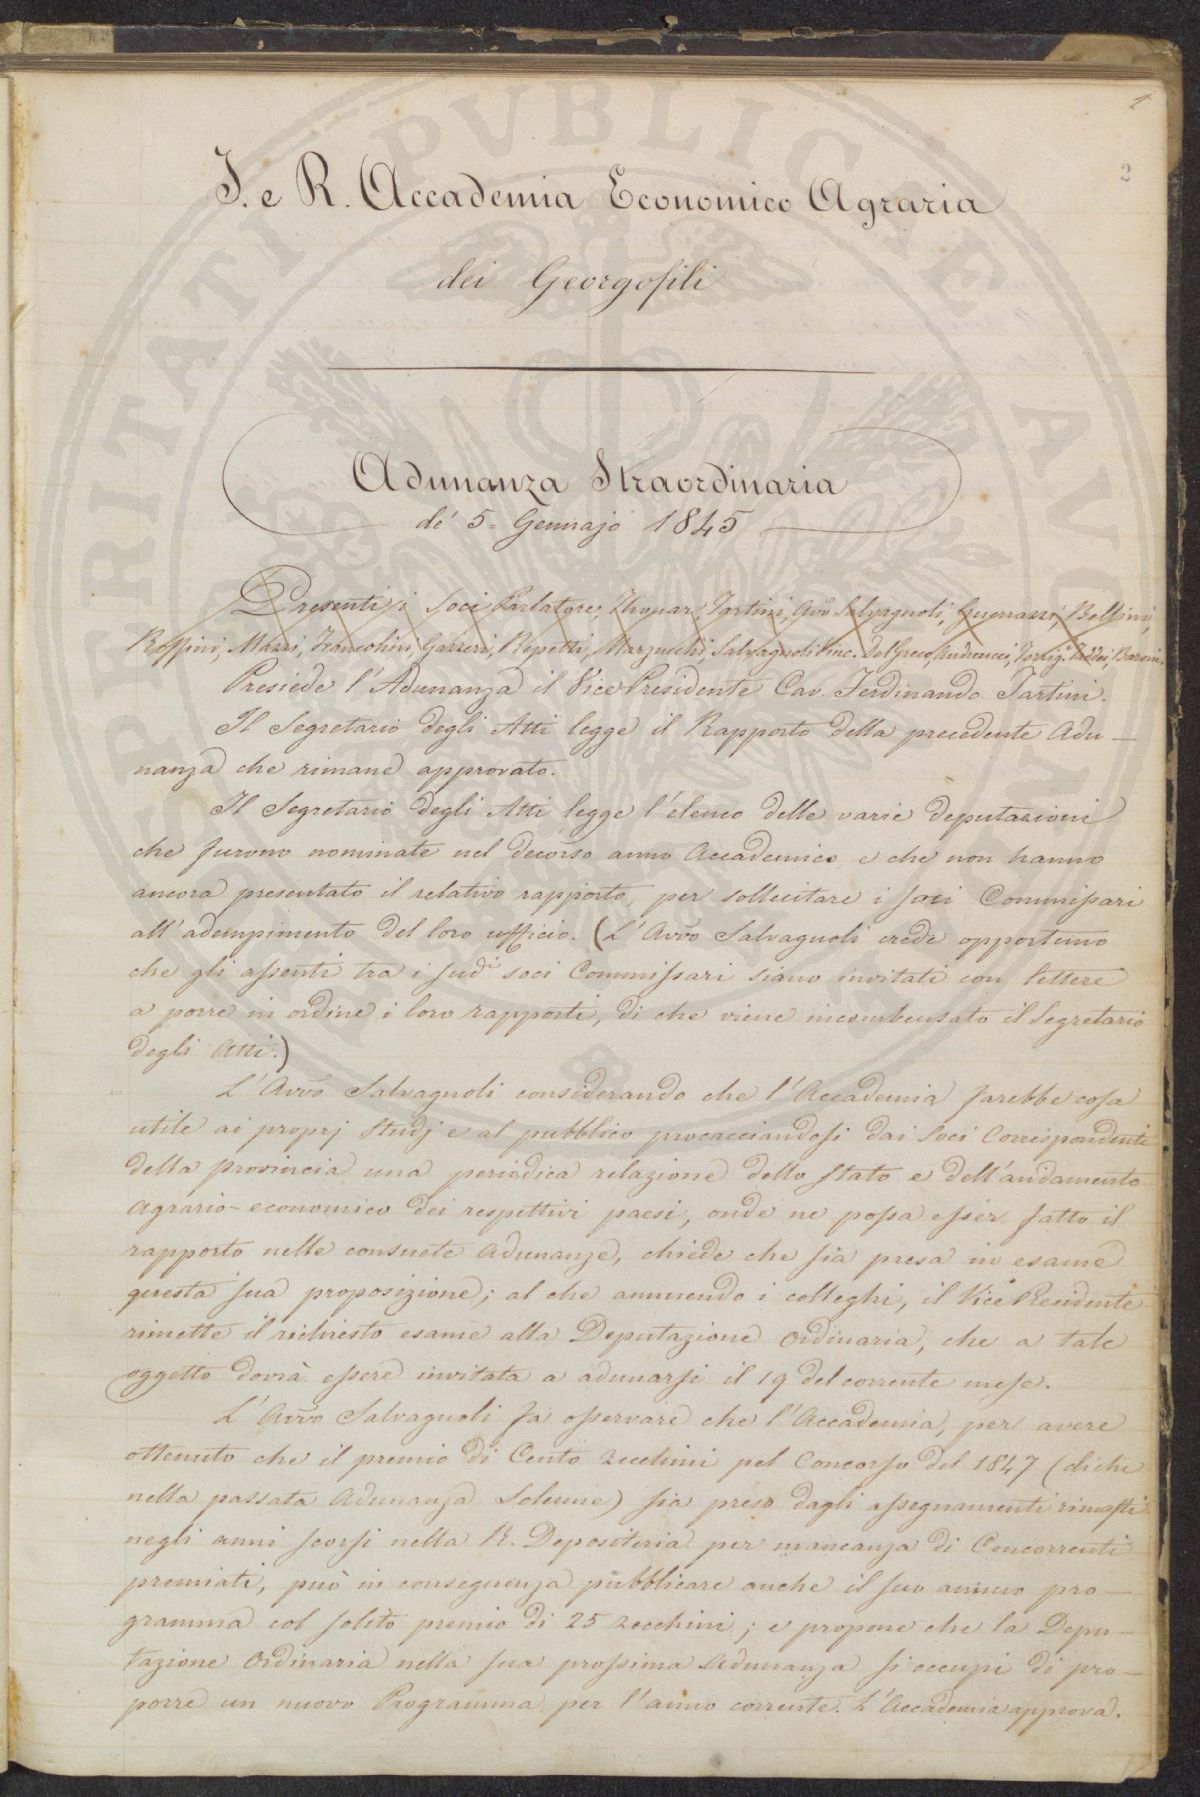 1
2
I. e R. Accademia Economico Agraria
dei Georgofili
Adunanza Straordinaria
de' 5 = Gennajo 1845
Presenti i Soci Parlatore, Thouar, Tartini, Avvo Salvagnoli, Guerrazzi, Bellini,
Roffini, Mazzi, Francolini, Gazzeri, Repetti, Marzucchi, Salvagnoli Vinc. Del Greco, Andreucci, Taddei Baroni.
Presiede l'Adunanza il Vice Presidente Cav. Ferdinando Tartini.
Il Segretario degli Atti legge il Rapporto della precedente Adu-
nanza che rimane approvato.
Il Segretario degli Atti legge l'elenco delle varie deputazioni
che furono nominate nel decorso anno Accademico e che non hanno
ancora presentato il relativo rapporto, per sollecitare i soci Commissari
all'adempimento del loro ufficio. (L'Avvo Salvagnoli crede opportuno
che gli assenti tra i sudi soci Commissari siano invitati con lettere
a porre in ordine i loro rapporti, di che viene incombensato il Segretario
degli Atti.)
L'Avvo Salvagnoli considerando che l'Accademia farebbe cosa
utile ai proprj studj e al pubblico procacciandosi dai Soci Corrispondenti
della provincia una periodica relazione dello stato e dell'andamento
agrario-economico dei respettivi paesi, onde ne possa esser fatto il
rapporto nelle consuete adunanze, chiede che sia presa in esame
questa sua proposizione; al che annuendo i colleghi, il Vice Presidente
rimette il richiesto esame alla Deputazione Ordinaria, che a tale
oggetto dovrà essere invitata a adunarsi il 19 del corrente mese.
L'Avvo Salvagnoli fa osservare che l'Accademia, per avere
ottenuto che il premio di Cento zecchini pel Concorso del 1847 (
nella passata Adunanza Solenne) sia preso dagli assegnamenti rimasti
negli anni scorsi nella R. Depositeria per mancanza di Concorrenti
premiati, può in conseguenza pubblicare anche il suo annuo pro-
gramma col solito premio di 25 zecchini; e propone che la Depu-
tazione Ordinaria nella sua prossima Adunanza si occupi di pro-
porre un nuovo Programma per l'anno corrente. L'Accademia approva.